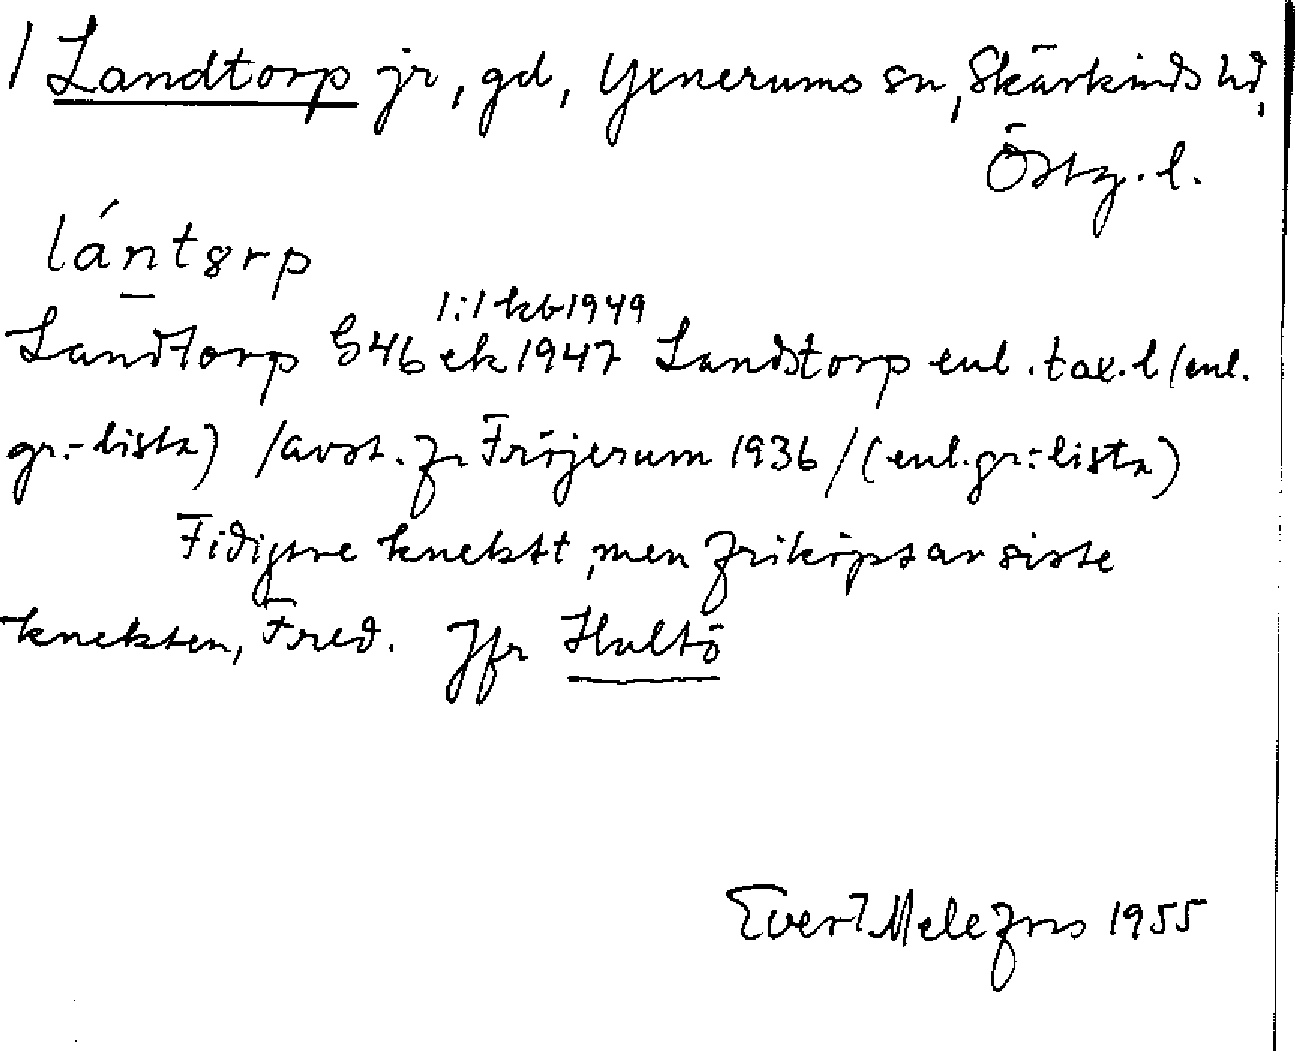 1 Landtorp jr, gd, Yxnerums sn, Skärkinds hd,
Östg. l.
lántȣrp
1:1 kb 1949
Landtorp G46 ek 1947 Landstorp enl. tax.l (enl.
gr.-lista) /avst. fr Fröjerum 1936/ (enl. gr.-lista)
Tidigare knektt, men friköpt av siste
knekten, Fred. Jfr Hultö
Evert Melefors 1955